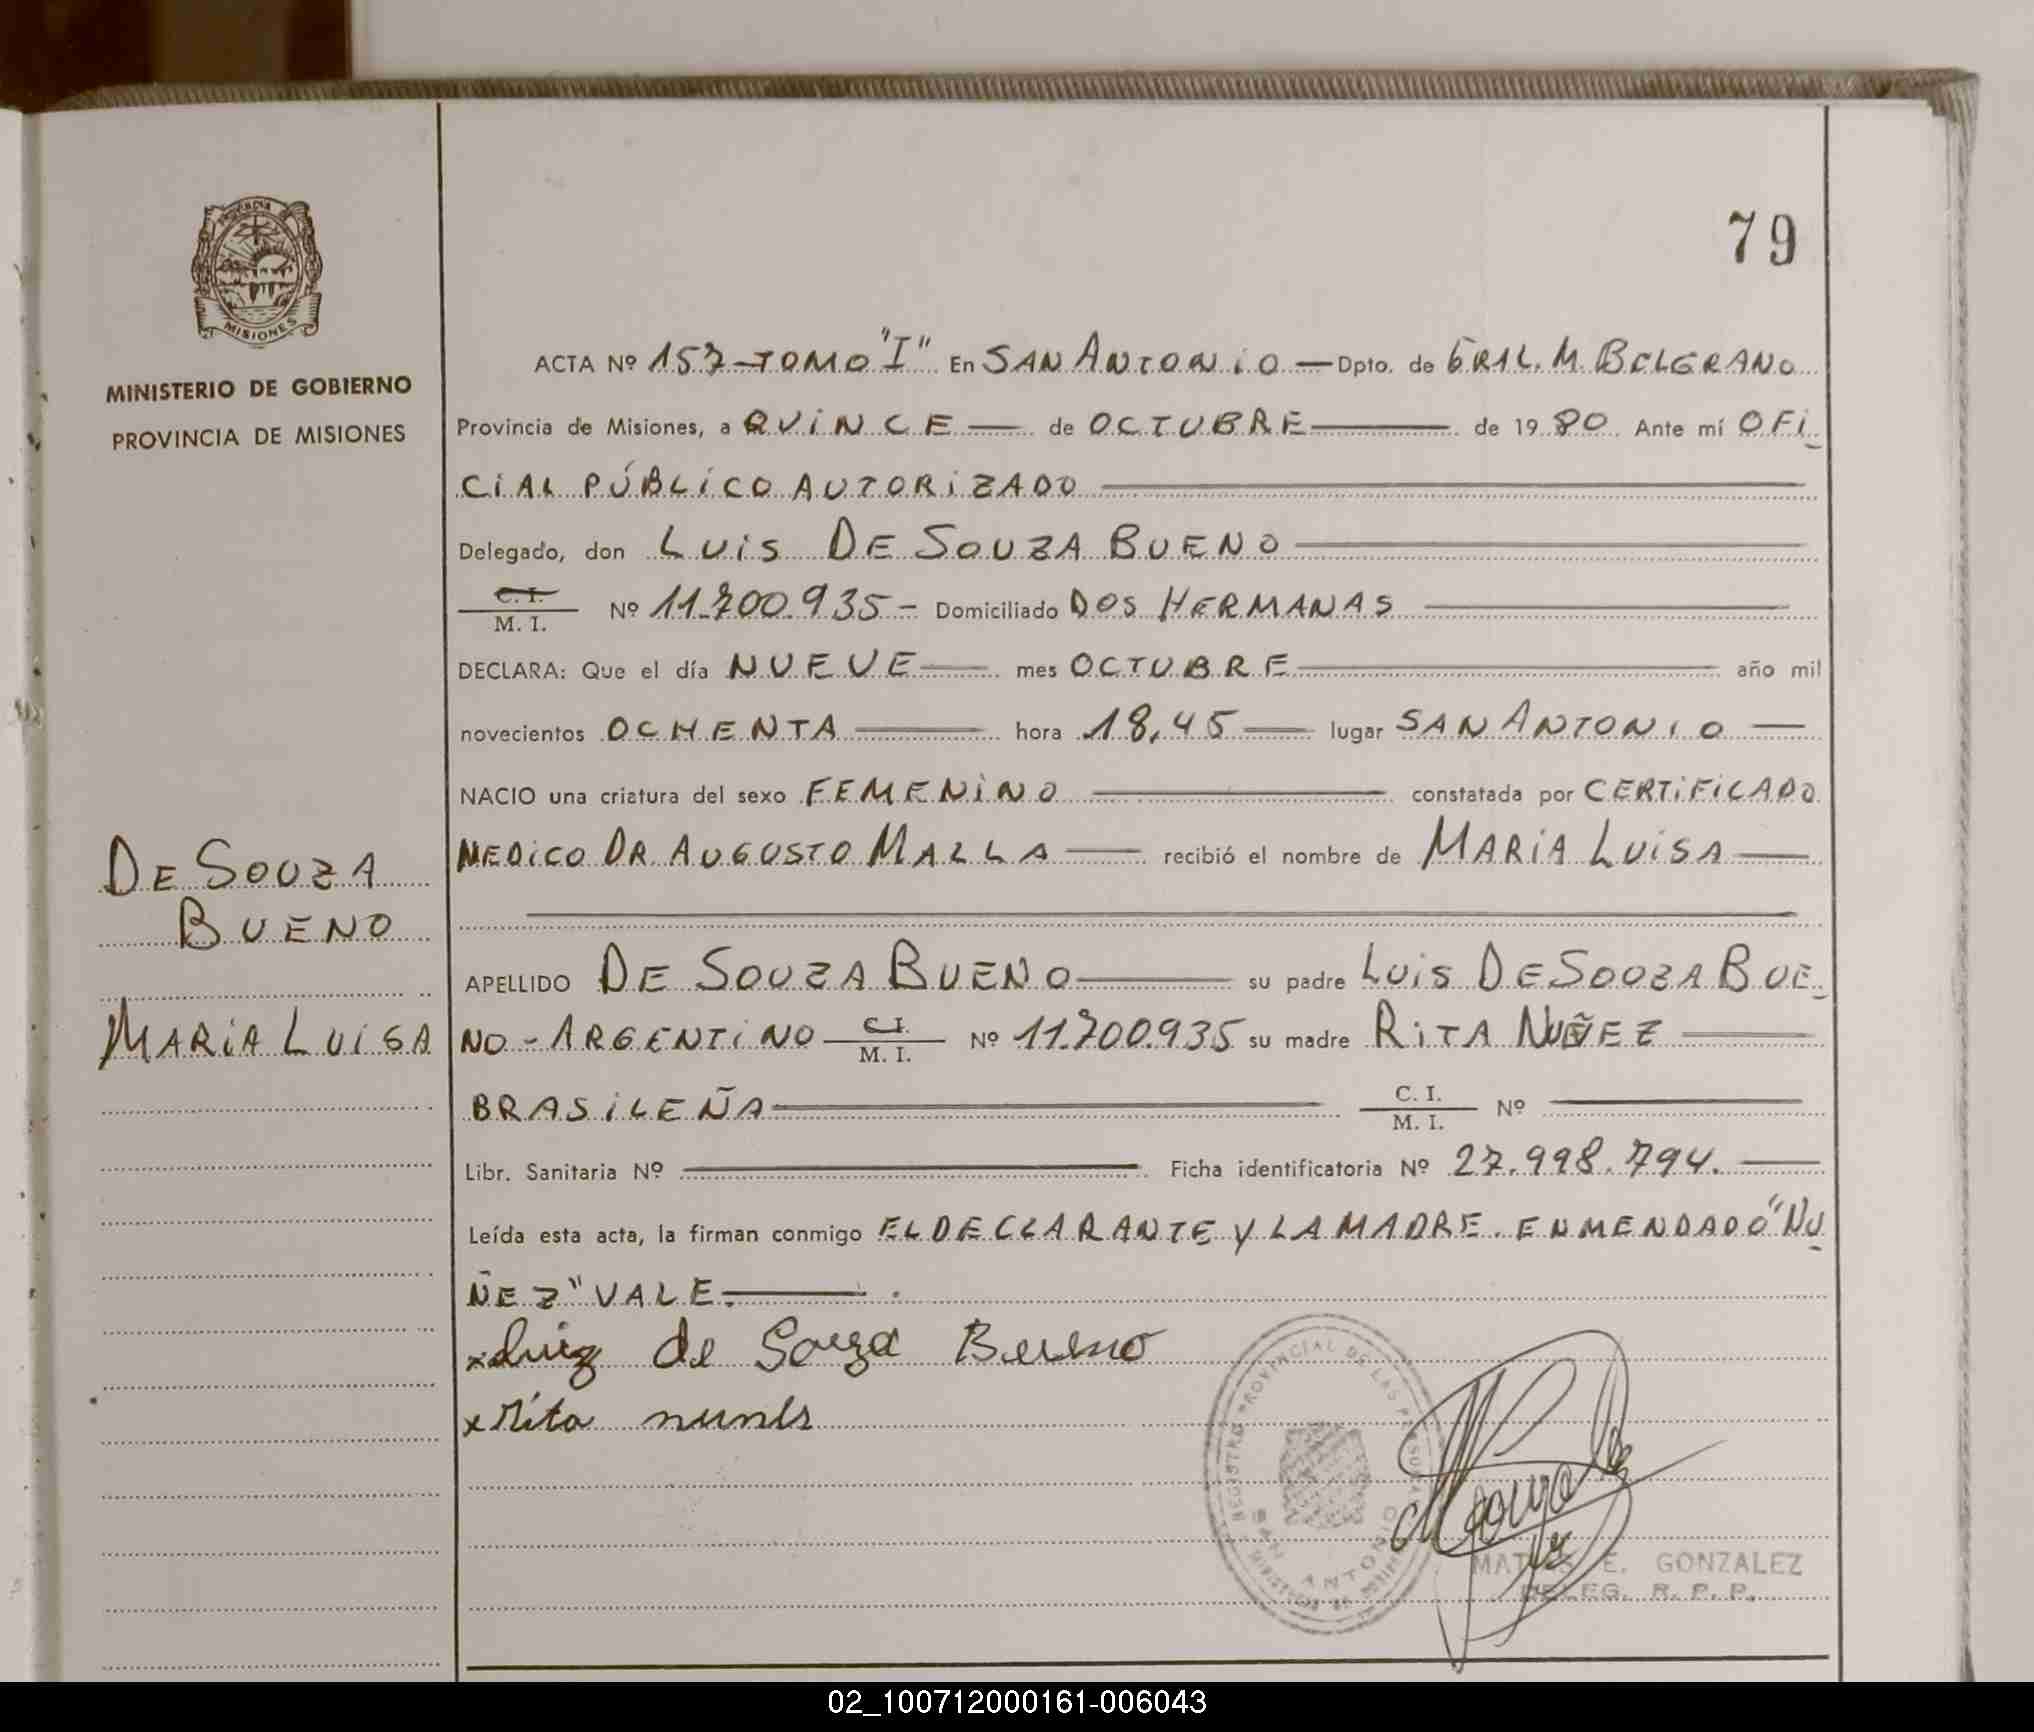 79
PROVINCIA
MISIONES
MINISTERIO DE GOBIERNO
PROVINCIA DE MISIONES
ACTA Nº 157-TOMO "I" En SAN ANTONIO — Dpto. de GRAL. M. BELGRANO
Provincia de Misiones, a QUINCE — de OCTUBRE — de 1980 Ante mí OFI-
CIAL PÚBLICO AUTORIZADO —
Delegado, don LUIS DE SOUZA BUENO —
C. I.
M. I. Nº 11.700.935 - Domiciliado DOS HERMANAS —
DECLARA: Que el día NUEVE — mes OCTUBRE — año mil
novecientos OCHENTA — hora 18,45 — lugar SAN ANTONIO —
NACIO una criatura del sexo FEMENINO — constatada por CERTIFICADO
MEDICO DR AUGUSTO MALLA — recibió el nombre de MARIA LUISA —
DE SOUZA
BUENO
MARIA LUISA
APELLIDO DE SOUZA BUENO — su padre LUIS DE SOUZA BUE-
NO - ARGENTINO C. I. M. I. Nº 11.700.935 su madre RITA NUÑEZ —
BRASILEÑA — C. I. M. I. Nº —
Libr. Sanitaria Nº — Ficha identificatoria Nº 27.998.794. —
Leída esta acta, la firman conmigo EL DECLARANTE Y LA MADRE. ENMENDADO "NU-
ÑEZ" VALE. — .
x Luiz de Souza Bueno
x Rita nunes
REGISTRO PROVINCIAL DE LAS PERSONAS
SAN ANTONIO
MATIAS E. GONZALEZ
DELEG. R. P. P.
02_100712000161-006043